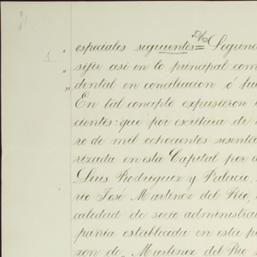 especiales siguientes = Segundo
sifis así en lo principal como
dental en conciliacion ó fu
En tal concepto expusieron
cientes: que por escritura de
ro de mil ochocientos sesenta
rizada en esta Capital por
Luis Rodriguez y Palacio,
rio José Martinez del Rio,
calidad de socio administra
pañia establecida en esta p
zon de Martinez del Rio